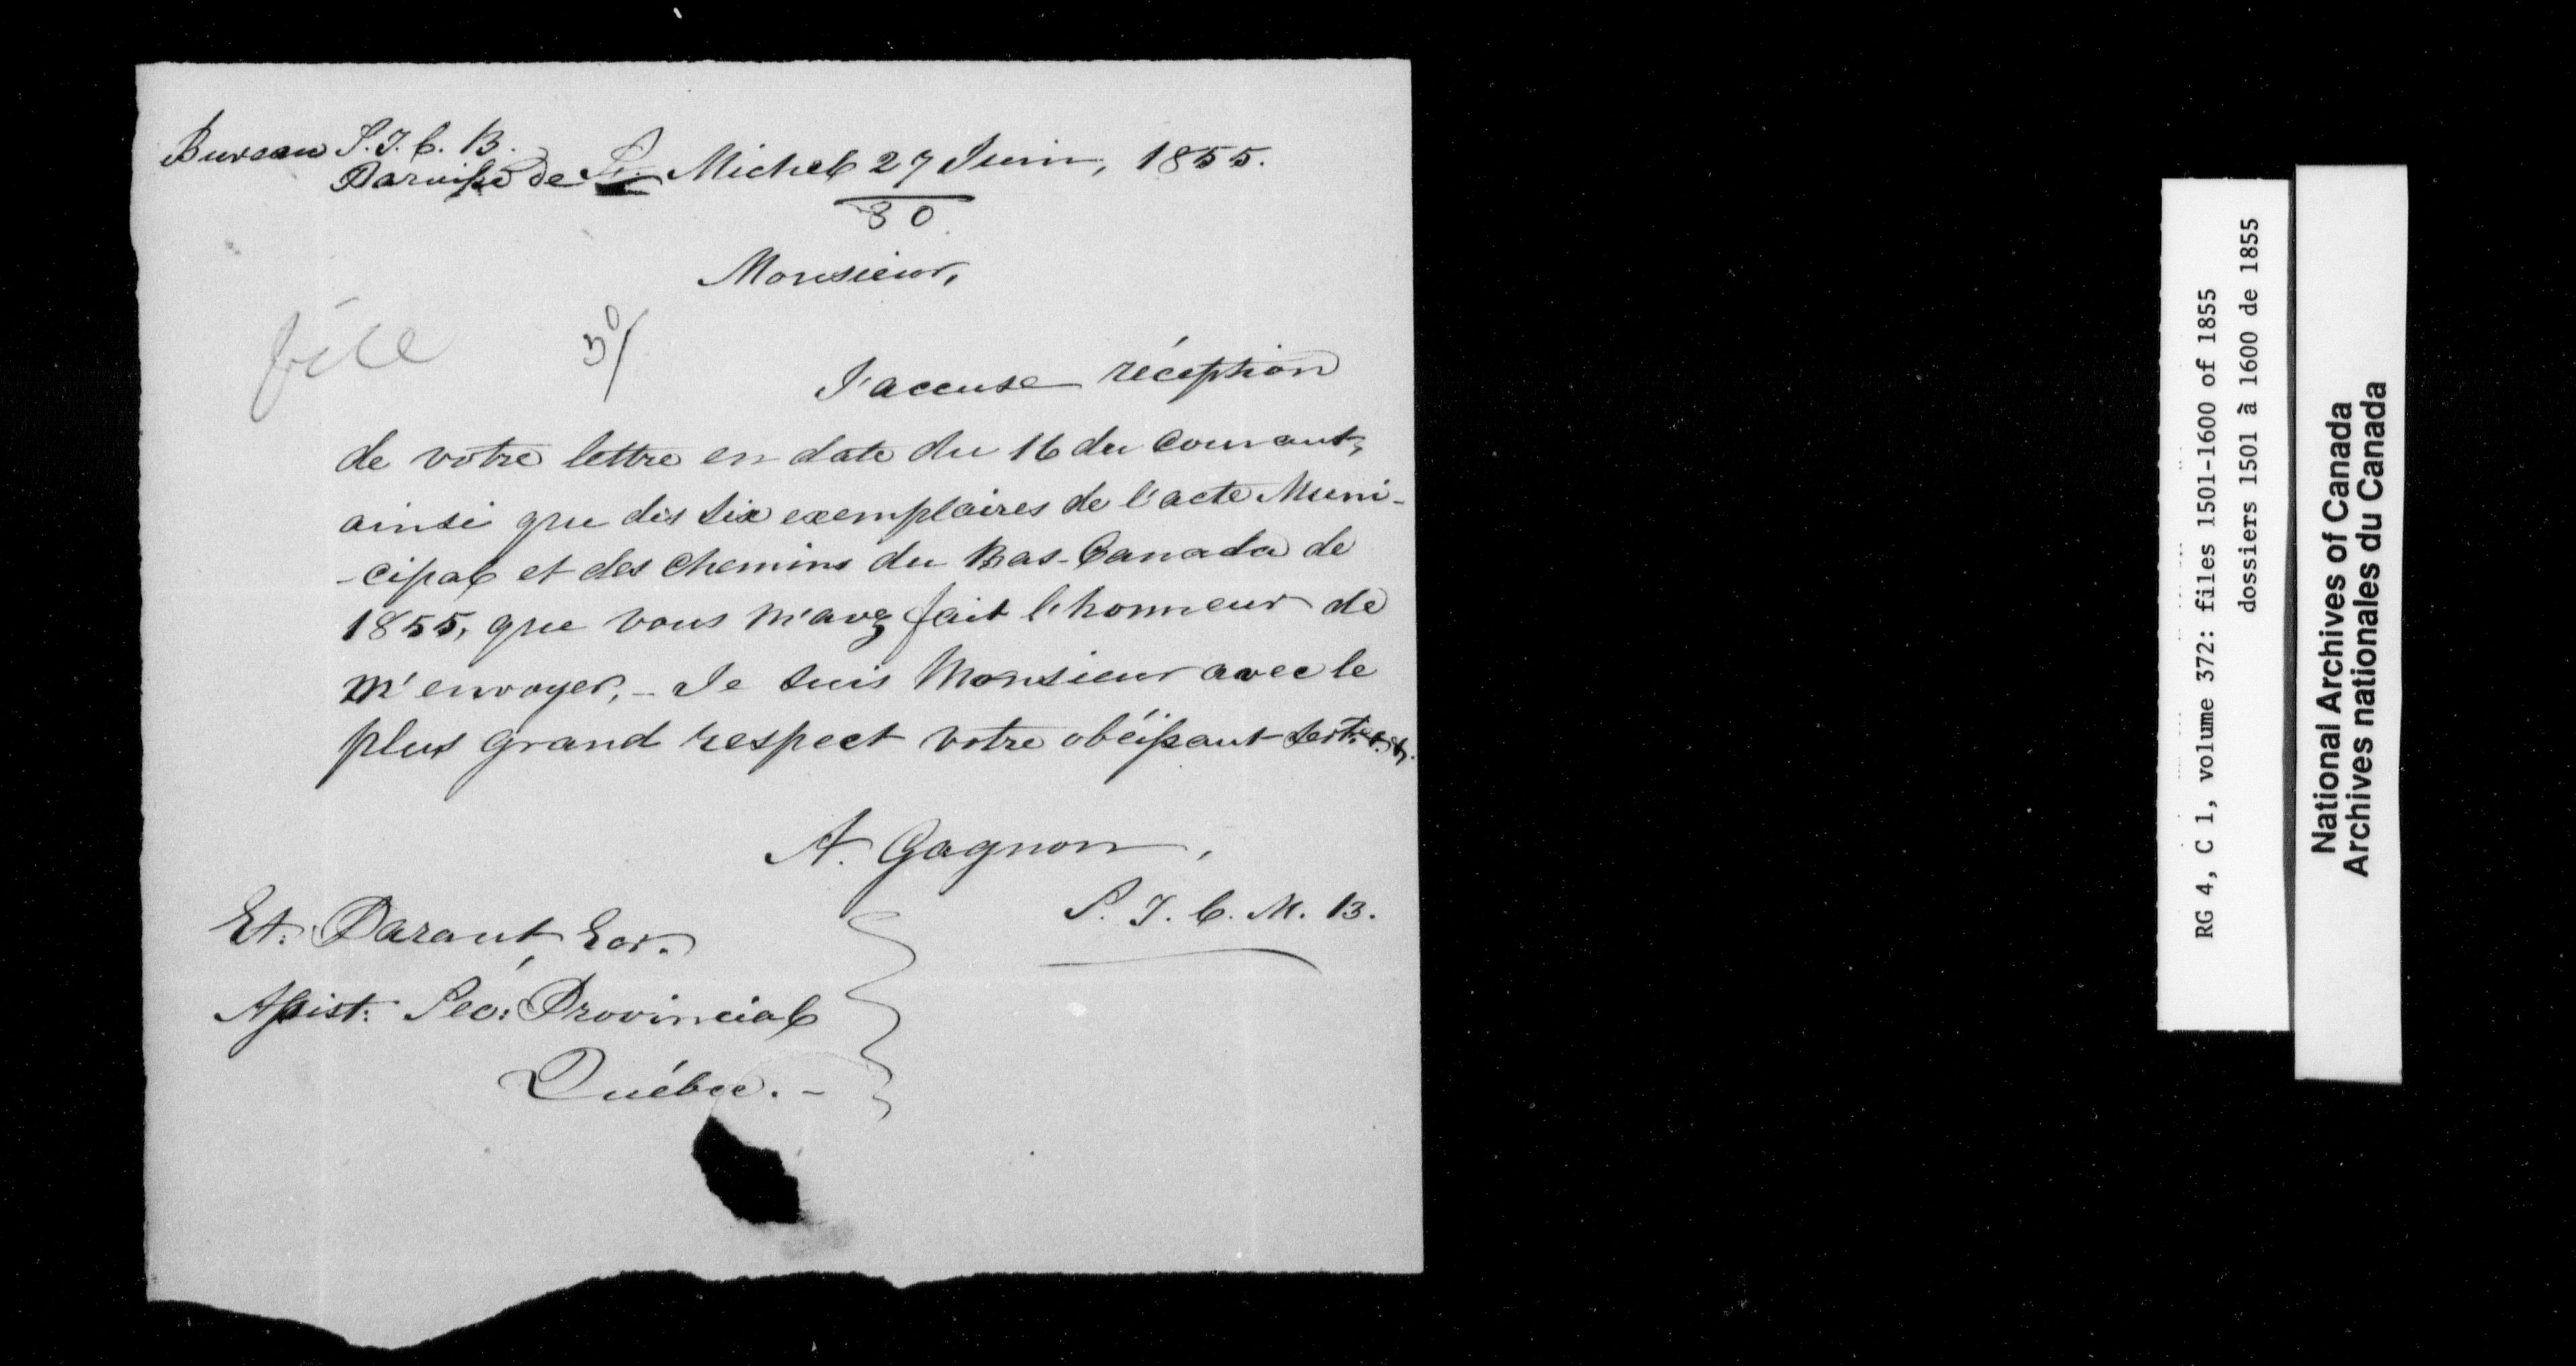 Bureau S. T. C. B.
Paroisse de St. Michel 27 Juin, 1855.
30
Monsieur,
file
J'accuse réception
de votre lettre en date du 16 du Courant,
ainsi que des six exemplaires de l'acte Muni-
-cipal et des Chemins du Bas-Canada de
1855, que vous m'avez fait l'honneur de
m'envoyer, - Je suis Monsieur avec le
plus grand respect votre obéissant
A. Gagnon,
S. T. C. M. B.
Et. Parant, Ecr.
Assist: Sec: Provincial
Québec. -
RG 4, C 1, volume 372: files 1501-1600 of 1855
dossiers 1501 à 1600 de 1855
National Archives of Canada
Archives nationales du Canada